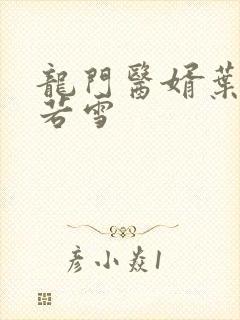 龍門醫婿葉
若雪
彦小焱1